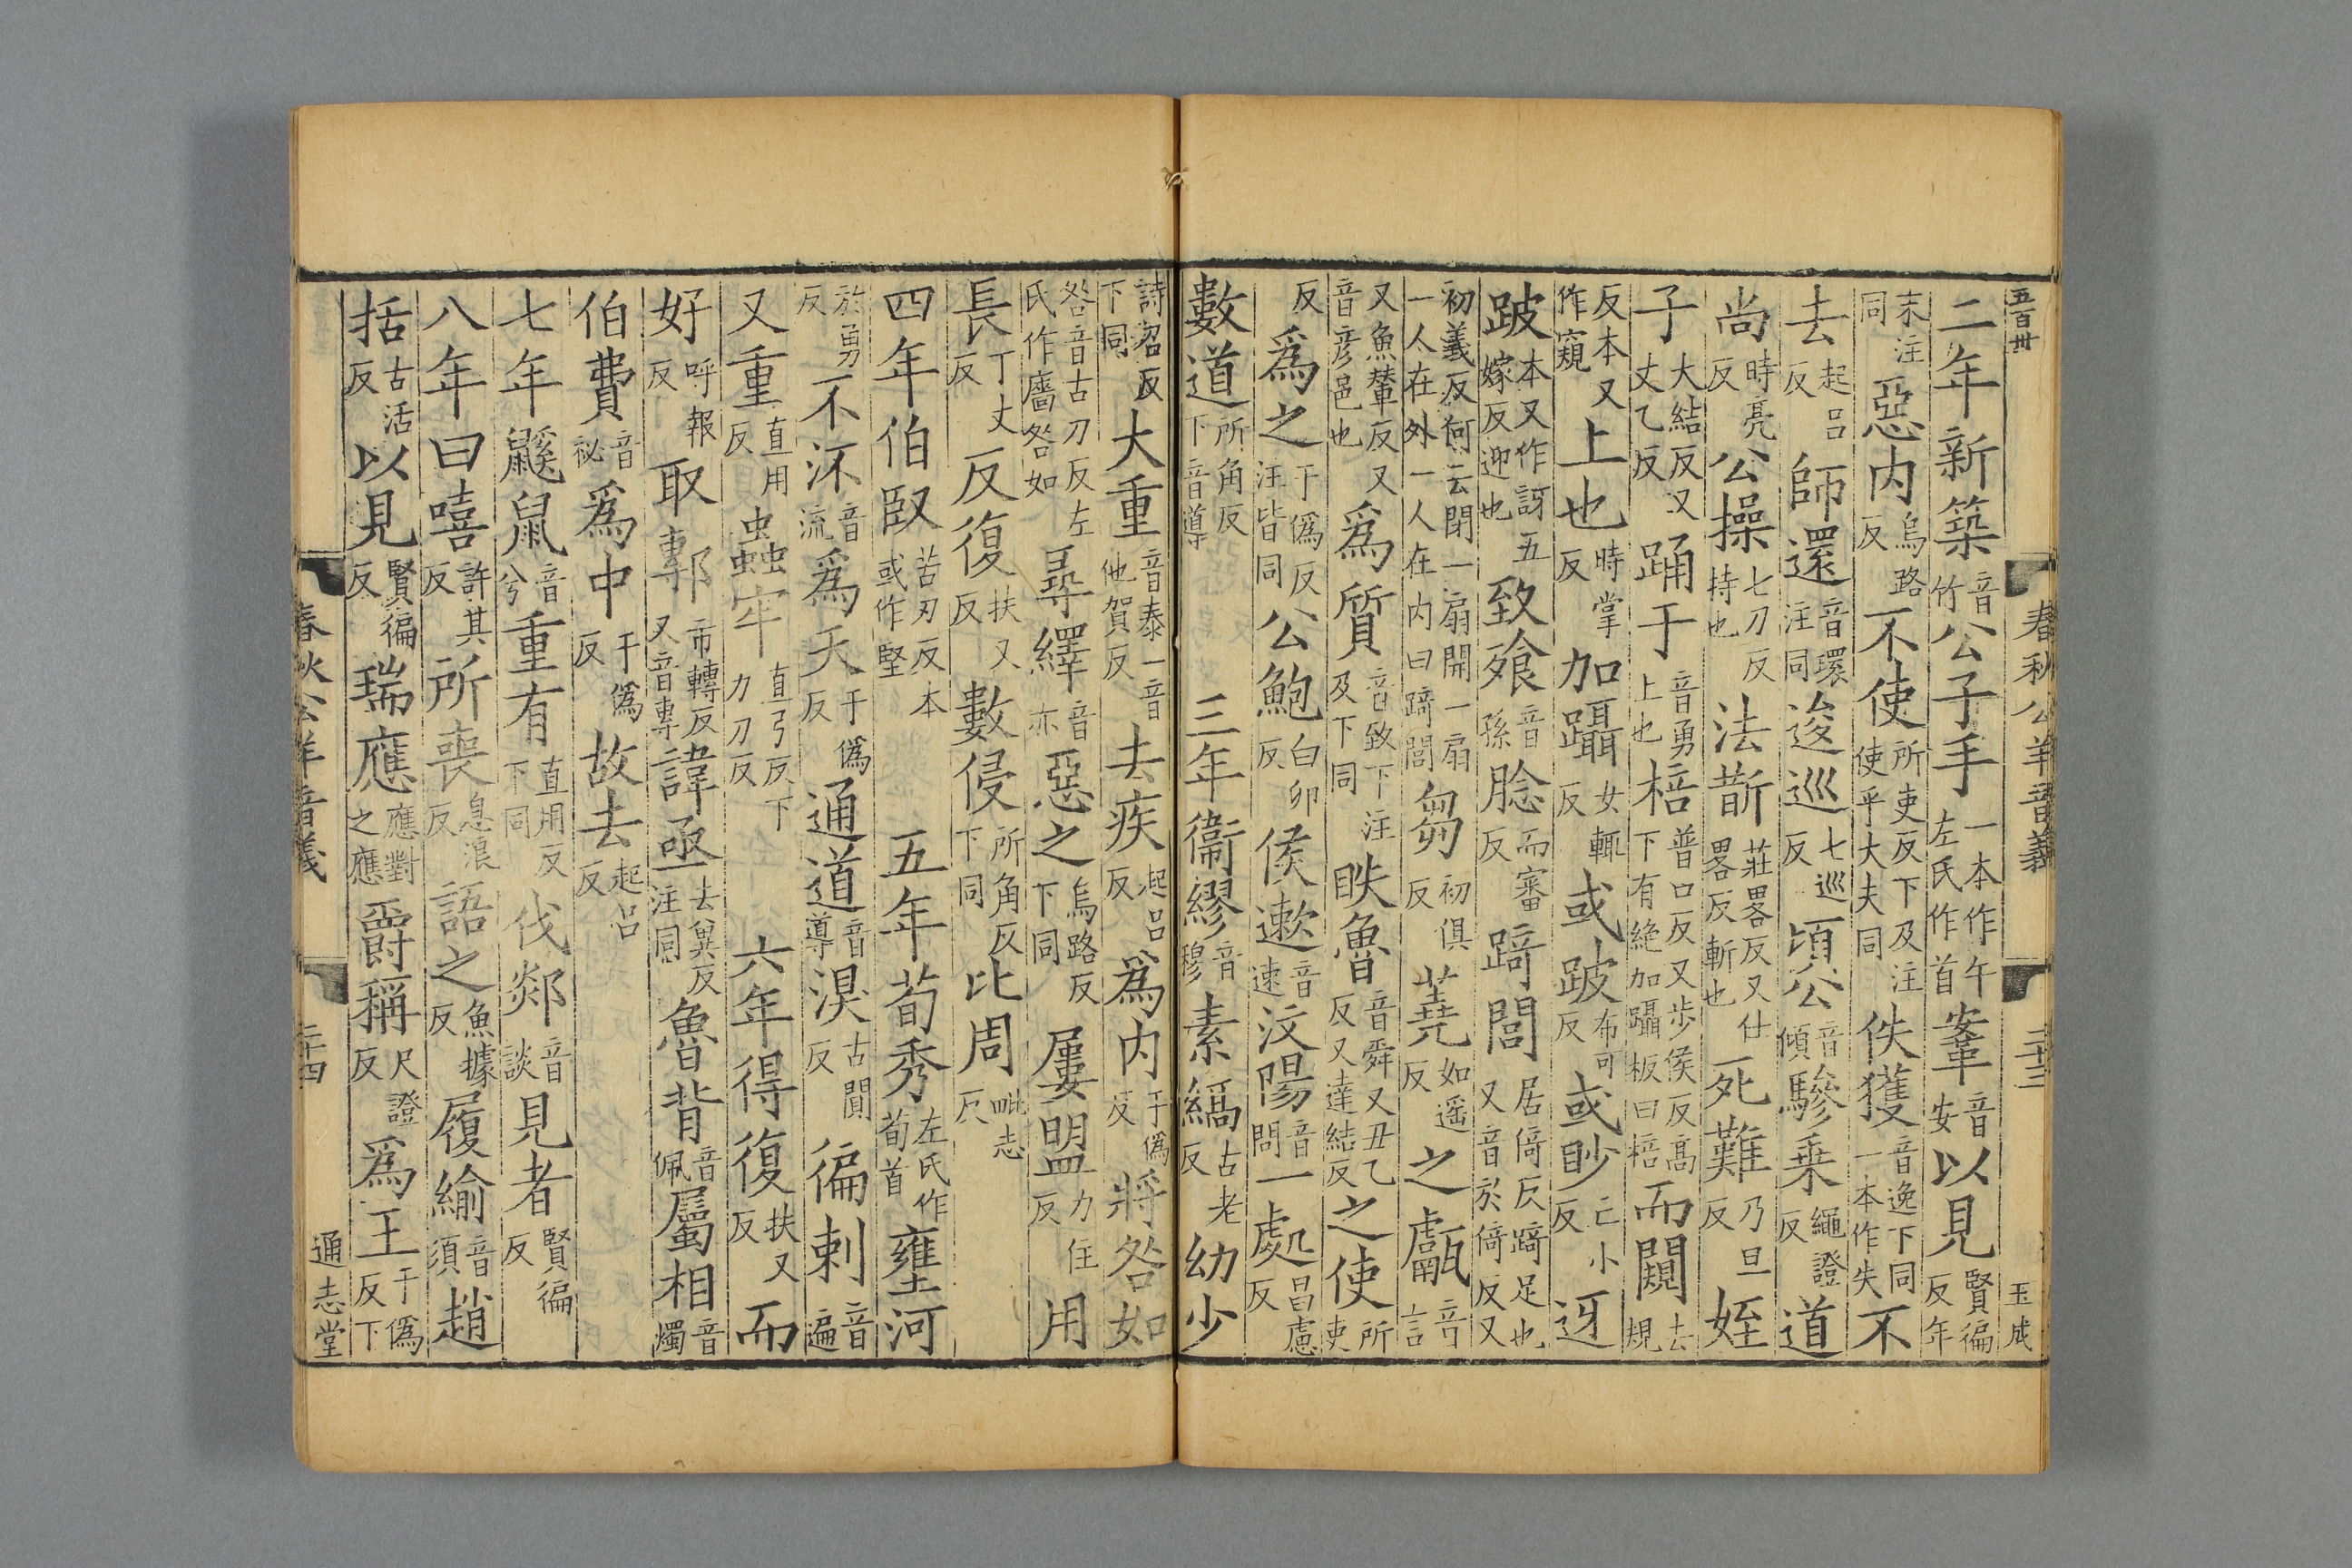 五百卅 春秋公羊音義 二十三 玉成
二年新築音竹公子手一本作午左氏作首鞌音安以見賢徧反年
末注同惡内烏路反不使所吏反下及注使乎大夫同佚獲音逸下同一本作失不
去起呂反師還音環注同逡巡七巡反頃公音傾驂乗繩證反道
尚時亮反公操七刀反持也法斮莊畧反又仕畧反斬也死難乃旦反姪
子大結反又丈乙反踊于音勇上也棓普口反又步侯反高下有絶加躡板曰棓而闚去規
反本又作窺上也時掌反加躡女輒反或跛布可反或眇亡小反迓
跛本又作訝五嫁反迎也致飱音孫脍而審反踦閭居倚反踦足也又音於倚反又
初義反何云閉一扇開一扇一人在外一人在内曰踦閭芻初俱反蕘如遥反之甗音言
又魚輦反又音彦邑也爲質音致下注及下同眣魯音舜又丑乙反又達結反之使所吏
反爲之于僞反注皆同公鮑白卯反侯遬音速汶陽音問一處昌慮反
數道所角反下音導 三年衞繆音穆素縞古老反幼少
詩召反下同大重音泰一音他賀反去疾起呂反爲内于僞反將咎如
咎音古刀反左氏作廧咎如尋繹音亦惡之烏路反下同屢盟力住反用
長丁丈反反復扶又反數侵所角反下同比周毗志反
四年伯臤苦刃反本或作堅 五年荀秀左氏作荀首壅河
於勇反不沠音流爲天于僞反通道音導湨古闃反徧剌音遍
又重直用反蟲牢直弓反下力刀反 六年得復扶又反而
好呼報反取鄟市轉反又音專諱亟去兾反注同魯背音佩屬相音燭
伯費音祕爲中于僞反故去起呂反
七年鼷鼠音兮重有直用反下同伐郯音談見者賢徧反
八年曰嘻許其反所喪息浪反語之魚據反履綸音須趙
括古活反以見賢徧反瑞應應對之應爵稱尺證反爲王于僞反下
春秋公羊音義 二十四 通志堂